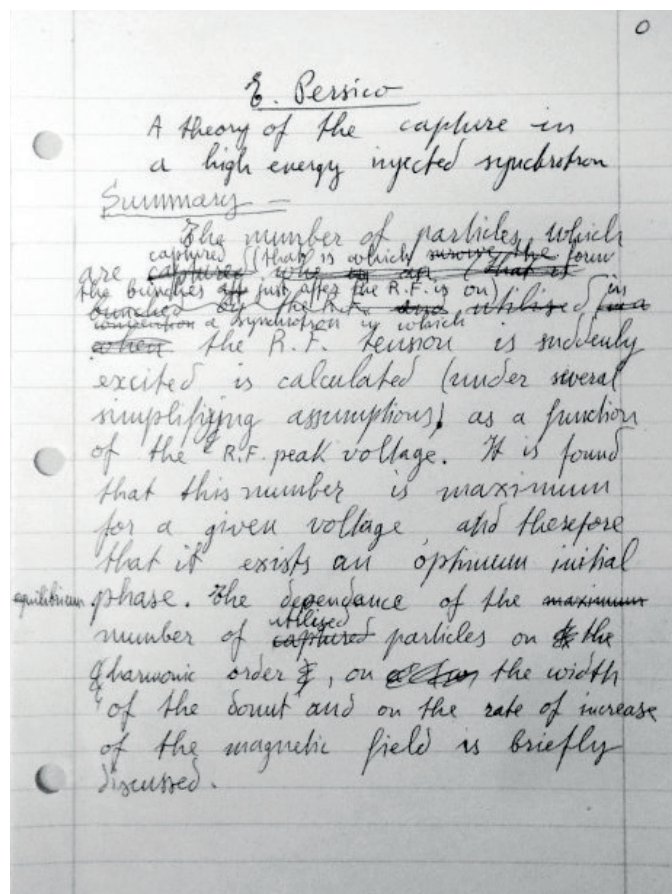 0
E. Persico
A theory of the capture in
a high energy injected synchrotron
Summary —
The number of particles which
captured (that is which survive the form
are captured (that is
the bunches just after the R.F. is on)
bunched by the R.F. and utilised in a
a synchrotron in which
when the R.F. tension is suddenly
excited is calculated (under several
simplifying assumptions) as a function
of the R.F. peak voltage. It is found
that this number is maximum
for a given voltage, and therefore
that it exists an optimum initial
equilibrium phase. The dependance of the maximum
utilised
number of captured particles on the
harmonic order, on the width
of the donut and on the rate of increase
of the magnetic field is briefly
discussed.